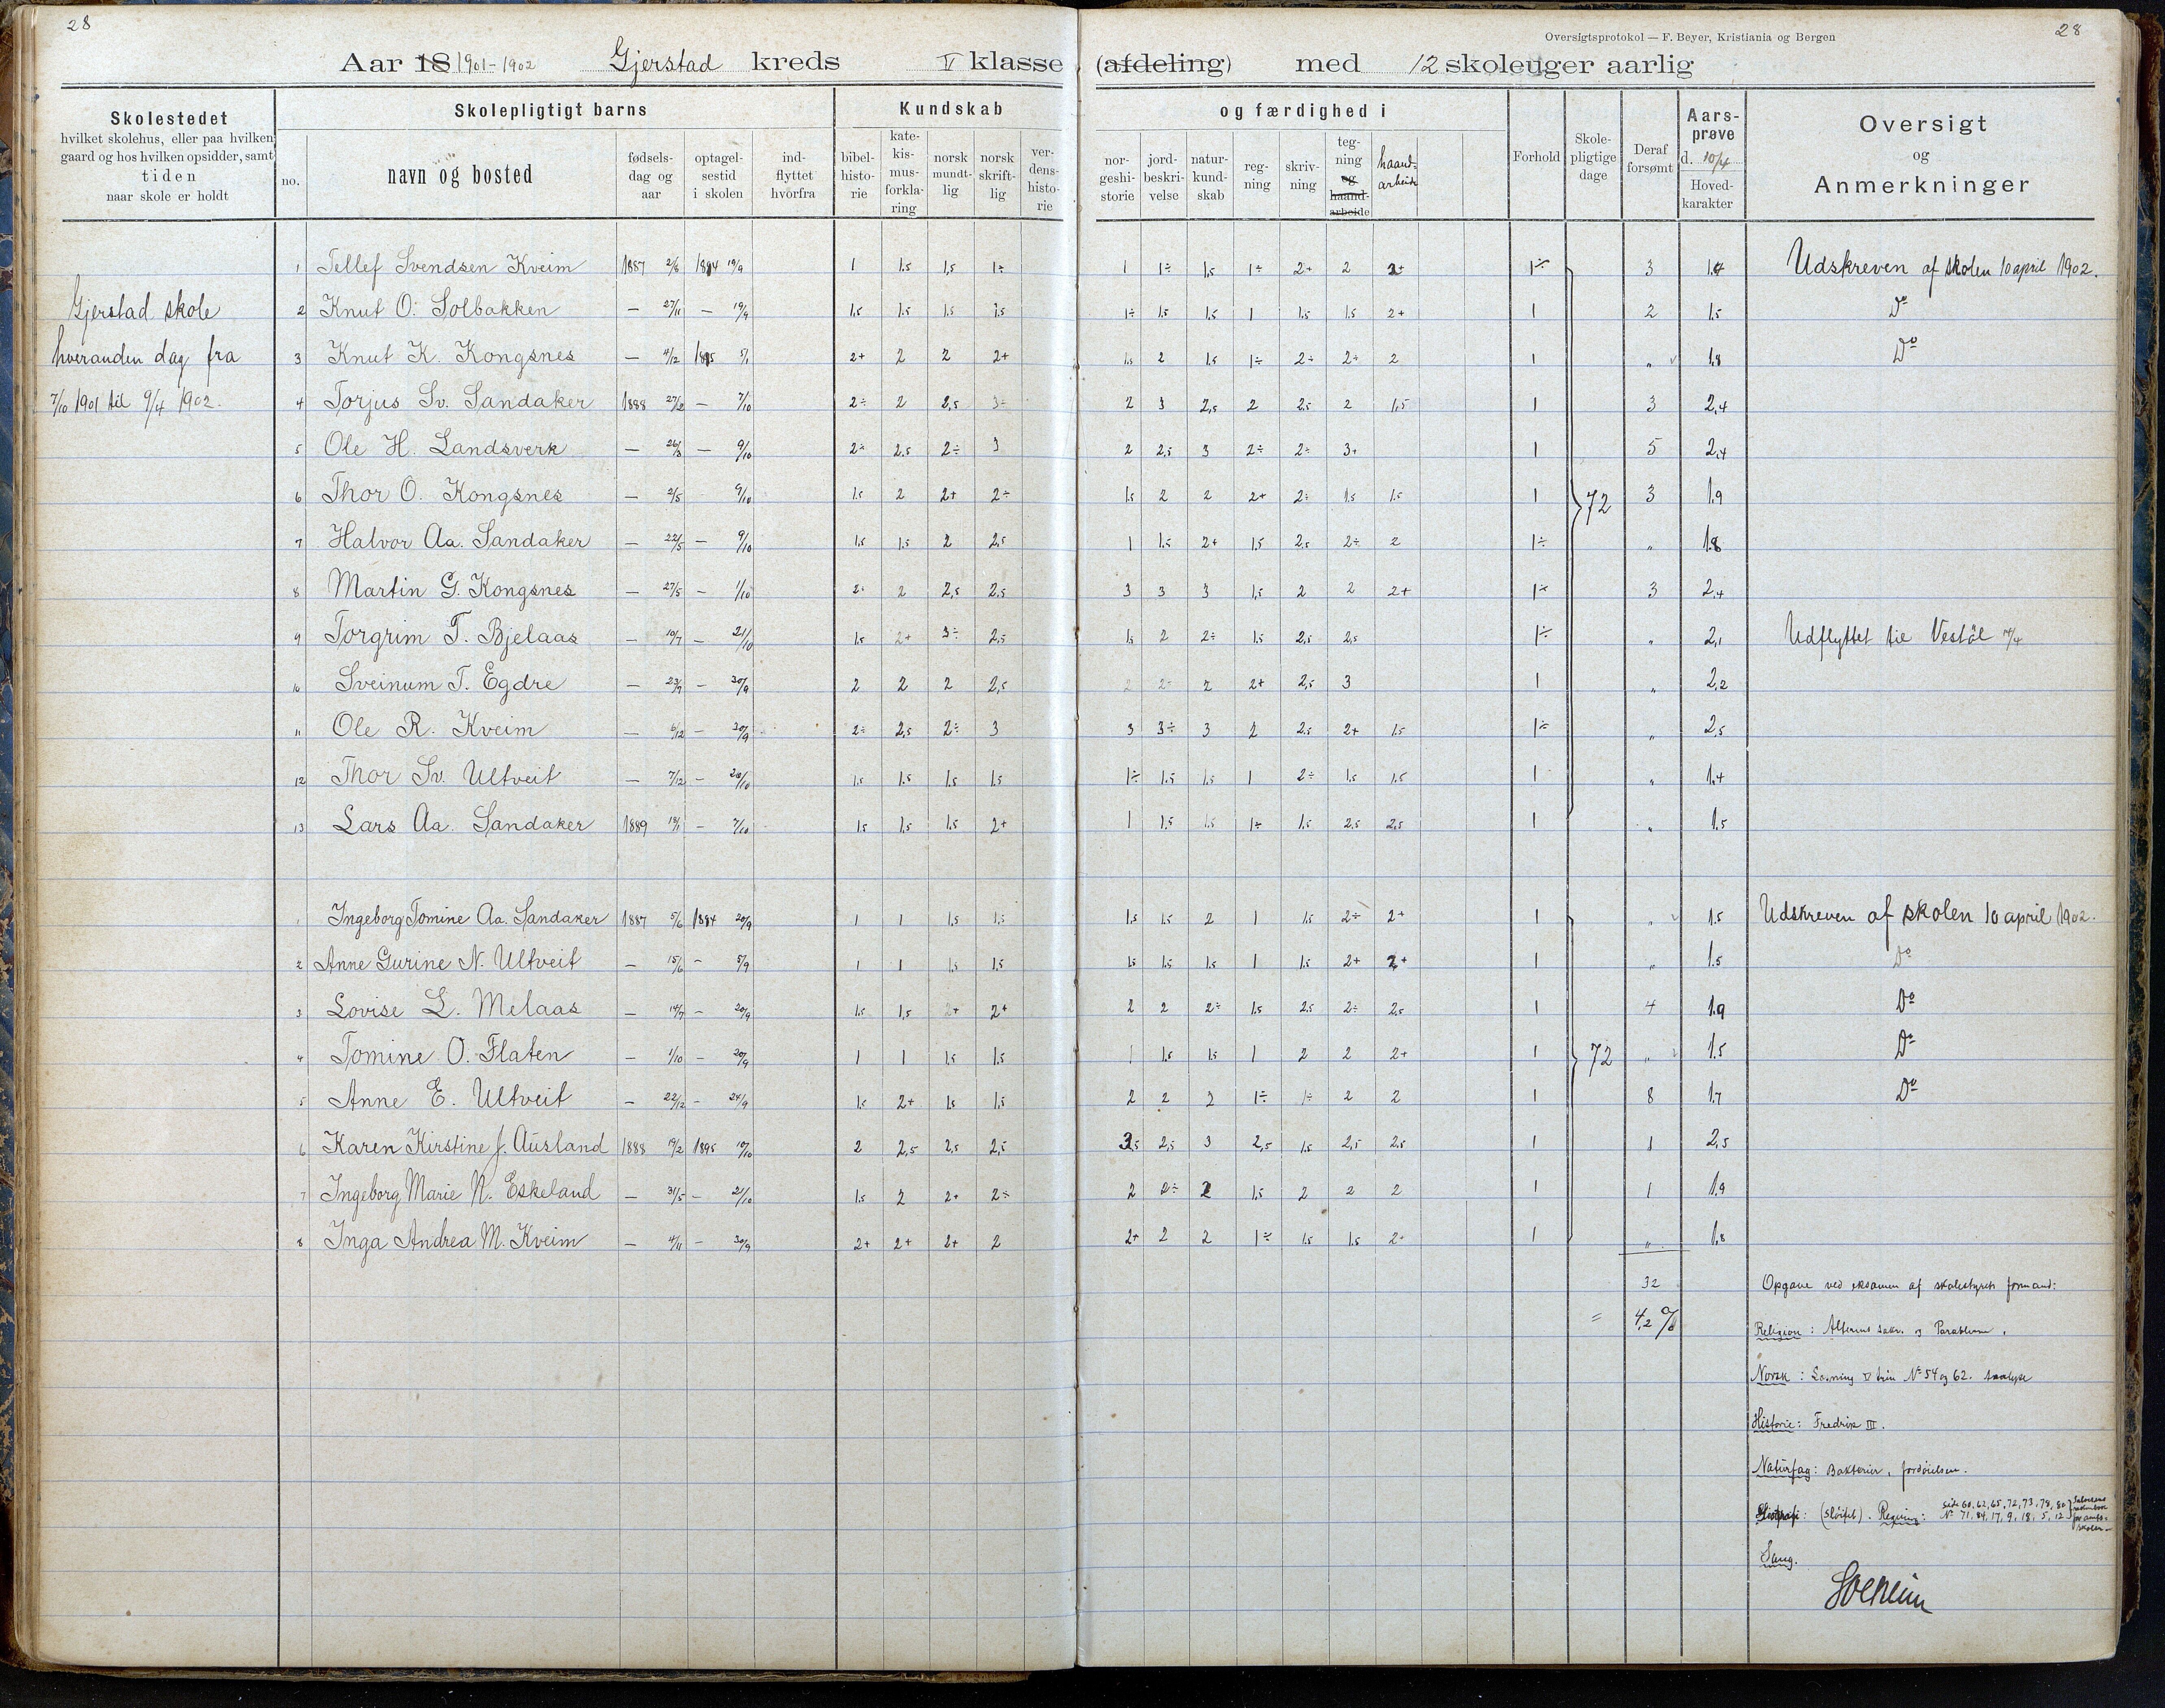 28
28
Oversigtsprotokol — F. Beyer, Kristiania og Bergen
Aar 18 1901-1902 Gjerstad kreds V klasse (afdeling) med 12 skoleuger aarlig
Skolestedet
hvilket skolehus, eller paa hvilken
gaard og hos hvilken opsidder, samt
tiden
naar skole er holdt
Skolepligtigt barns
no.
navn og bosted
fødsels-
dag og
aar
optagel-
sestid
i skolen
ind-
flyttet
hvorfra
Kundskab
bibel-
histo-
rie
kate-
kis-
mus-
forkla-
ring
norsk
mundt-
lig
norsk
skrift-
lig
ver-
dens-
histo-
rie
og færdighed i
nor-
geshi-
storie
jord-
beskri-
velse
natur-
kund-
skab
reg-
ning
skriv-
ning
teg-
ning
og
haand-
arbeide
haand-
arbeide
Forhold
Skole-
pligtige
dage
Deraf
forsømt
Aars-
prøve
d. 10/4
Hoved-
karakter
Oversigt
og
Anmerkninger
Gjerstad skole
hveranden dag fra
7/10 1901 til 9/4 1902.
1 Tellef Svendsen Kveim 1887 2/6 1894 19/9 1 1,5 1,5 1÷ 1 1÷ 1,5 1÷ 2+ 2 2+ 1÷ 3 1,4 Udskreven af skolen 10 april 1902.
2 Knut O. Solbakken — 27/11 — 19/9 1,5 1,5 1,5 1,5 1÷ 1,5 1,5 1 1,5 1,5 2+ 1 2 1,5 Do
3 Knut K. Kongsnes — 4/12 1895 5/1 2+ 2 2 2+ 1,5 2 1,5 1÷ 2÷ 2÷ 2 1 „ 1,8 Do
4 Torjus Sv. Sandaker 1888 27/2 — 7/10 2÷ 2 2,5 3÷ 2 3 2,5 2 2,5 2 1,5 1 3 2,4
5 Ole H. Landsverk — 26/3 — 9/10 2÷ 2,5 2÷ 3 2 2,5 3 2÷ 2÷ 3+ 1 5 2,4
6 Thor O. Kongsnes — 2/5 9/10 1,5 2 2+ 2÷ 1,5 2 2 2+ 2÷ 1,5 1,5 1 72 3 1,9
7 Halvor Aa. Sandaker — 22/5 — 9/10 1,5 1,5 2 2,5 1 1,5 2+ 1,5 2,5 2÷ 2 1÷ „ 1,8
8 Martin G. Kongsnes — 27/5 — 1/10 2÷ 2 2,5 2,5 3 3 3 1,5 2 2 2+ 1÷ 3 2,4
9 Torgrim T. Bjelaas — 10/7 — 21/10 1,5 2+ 3÷ 2,5 1,5 2 2÷ 1,5 2,5 2,5 1÷ „ 2,1 Udflyttet til Vestöl
10 Sveinum T. Egdre — 23/9 — 20/9 2 2 2 2,5 2 2÷ 2 2+ 2,5 3 1 „ 2,2
11 Ole R. Kveim — 6/12 — 20/9 2÷ 2,5 2÷ 3 3 3÷ 3 2 2,5 2+ 1,5 1÷ „ 2,5
12 Thor Sv. Ultveit — 7/12 — 20/10 1,5 1,5 1,5 1,5 1÷ 1,5 1,5 1 2÷ 1,5 1,5 1 „ 1,4
13 Lars Aa. Sandaker 1889 — 7/10 1,5 1,5 1,5 2+ 1 1,5 1,5 1÷ 1,5 2,5 2,5 1 „ 1,5
1 Ingeborg Tomine Aa. Sandaker 1887 5/6 1894 20/9 1 1 1,5 1,5 1,5 1,5 2 1 1,5 2÷ 2+ 1 „ 1,5 Udskreven af skolen 10 april 1902.
2 Anne Gurine N. Ultveit — 15/6 — 5/9 1 1 1,5 1,5 1,5 1,5 1,5 1 1,5 2+ 2+ 1 „ 1,5 Do
3 Lovise L. Melaas — 14/7 — 20/9 1,5 1,5 2+ 2+ 2 2 2÷ 1,5 2,5 2÷ 2,5 1 4 1,9 Do
4 Tomine O. Flaten — 1/10 — 20/9 1 1 1,5 1,5 1 1,5 1,5 1 2 2 2+ 1 72 „ 1,5 Do
5 Anne E. Ultveit — 22/12 — 24/9 1,5 2+ 1,5 1,5 2 2 2 1÷ 1÷ 2 2 1 8 1,7 Do
6 Karen Kirstine J. Ausland 1888 19/2 1895 10/10 2 2,5 2,5 2,5 3,5 2,5 3 2,5 1,5 2,5 2,5 1 1 2,5
7 Ingeborg Marie N. Eskeland — 31/5 — 2/10 1,5 2 2+ 2÷ 2 2÷ 2 1,5 2 2 2 1 1 1,9
8 Inga Andrea M. Kveim — 4/11 — 30/9 2+ 2+ 2+ 2 2+ 2 2 1÷ 1,5 1,5 2÷ 1 „ 1,8
32
= 4,2 %
Opgave ved eksamen af skolestyrets formand:
Religion: Alterens sakr. og Parablerne.
Norsk: Læsning V trin No 54 og 62. Analyse
Historie: Fredrik III.
Naturfag: Bakterier, fordøielsen.
(sløifet). Regning: side 60, 62, 65, 72, 73, 78, 80
No 71, 84, 17, 9, 18, 5, 12
Sang.